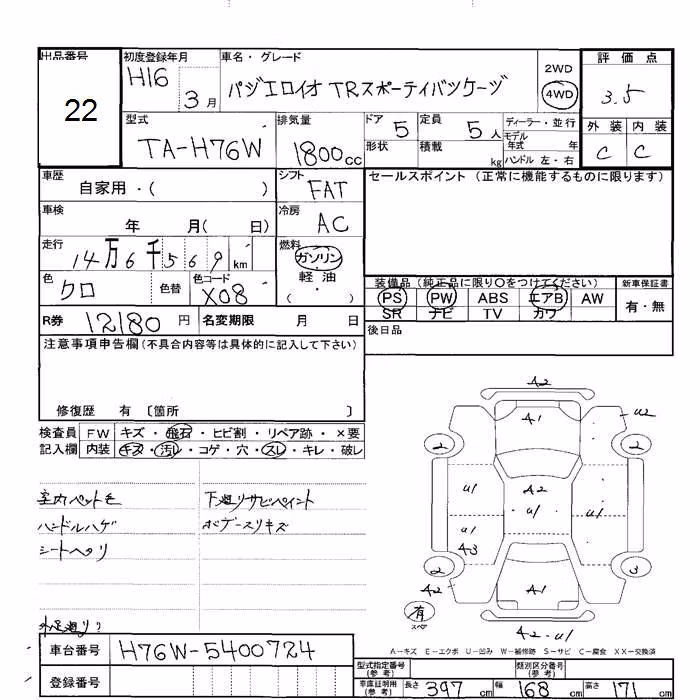 出品番号
22
初度登録年月
H16 3月
車名・グレード
パジェロイオ TRスポーティパッケージ
2WD
4WD
評価点
3.5
外装 内装
C C
型式
TA-H76W
排気量
1800cc
ドア 5
形状
定員 5人
積載 kg
ディーラー・並行
モデル
年式 年
ハンドル 左・右
車歴
自家用・( )
シフト
FAT
車検
年 月( 日)
冷房
AC
走行
14万6千569km
燃料
ガソリン
軽・油
( ・ )
色
クロ
色替
色コード
X08
R券 12180円
名変期限 月 日
セールスポイント (正常に機能するものに限ります)
装備品(純正品に限り○をつけてください)
PS PW ABS エアB AW
SR ナビ TV カワ
新車保証書
有・無
後日品
注意事項申告欄(不具合内容等は具体的に記入して下さい)
修復歴 有 〔箇所 〕
検査員
記入欄
FW キズ・飛石・ヒビ割・リペア跡・×要
内装 キズ・汚レ・コゲ・穴・スレ・キレ・破レ
室内ペット毛
ハンドルハゲ
シートヘタリ
下廻りサビペイント
ボデースリキズ
A2
A1
U2
2 2
A2
U1 U1 U1
U1
A3
2 3
A2
A1
有
スペア
A2-U1
A-キズ E-エクボ U-凹み W-補修跡 S-サビ C-腐食 XX-交換済
車台番号 H76W-5400724
登録番号
型式指定番号
(参考)
類別区分番号
(参考)
車庫証明用
(参考)
長さ 397cm 幅 168cm 高さ 171cm